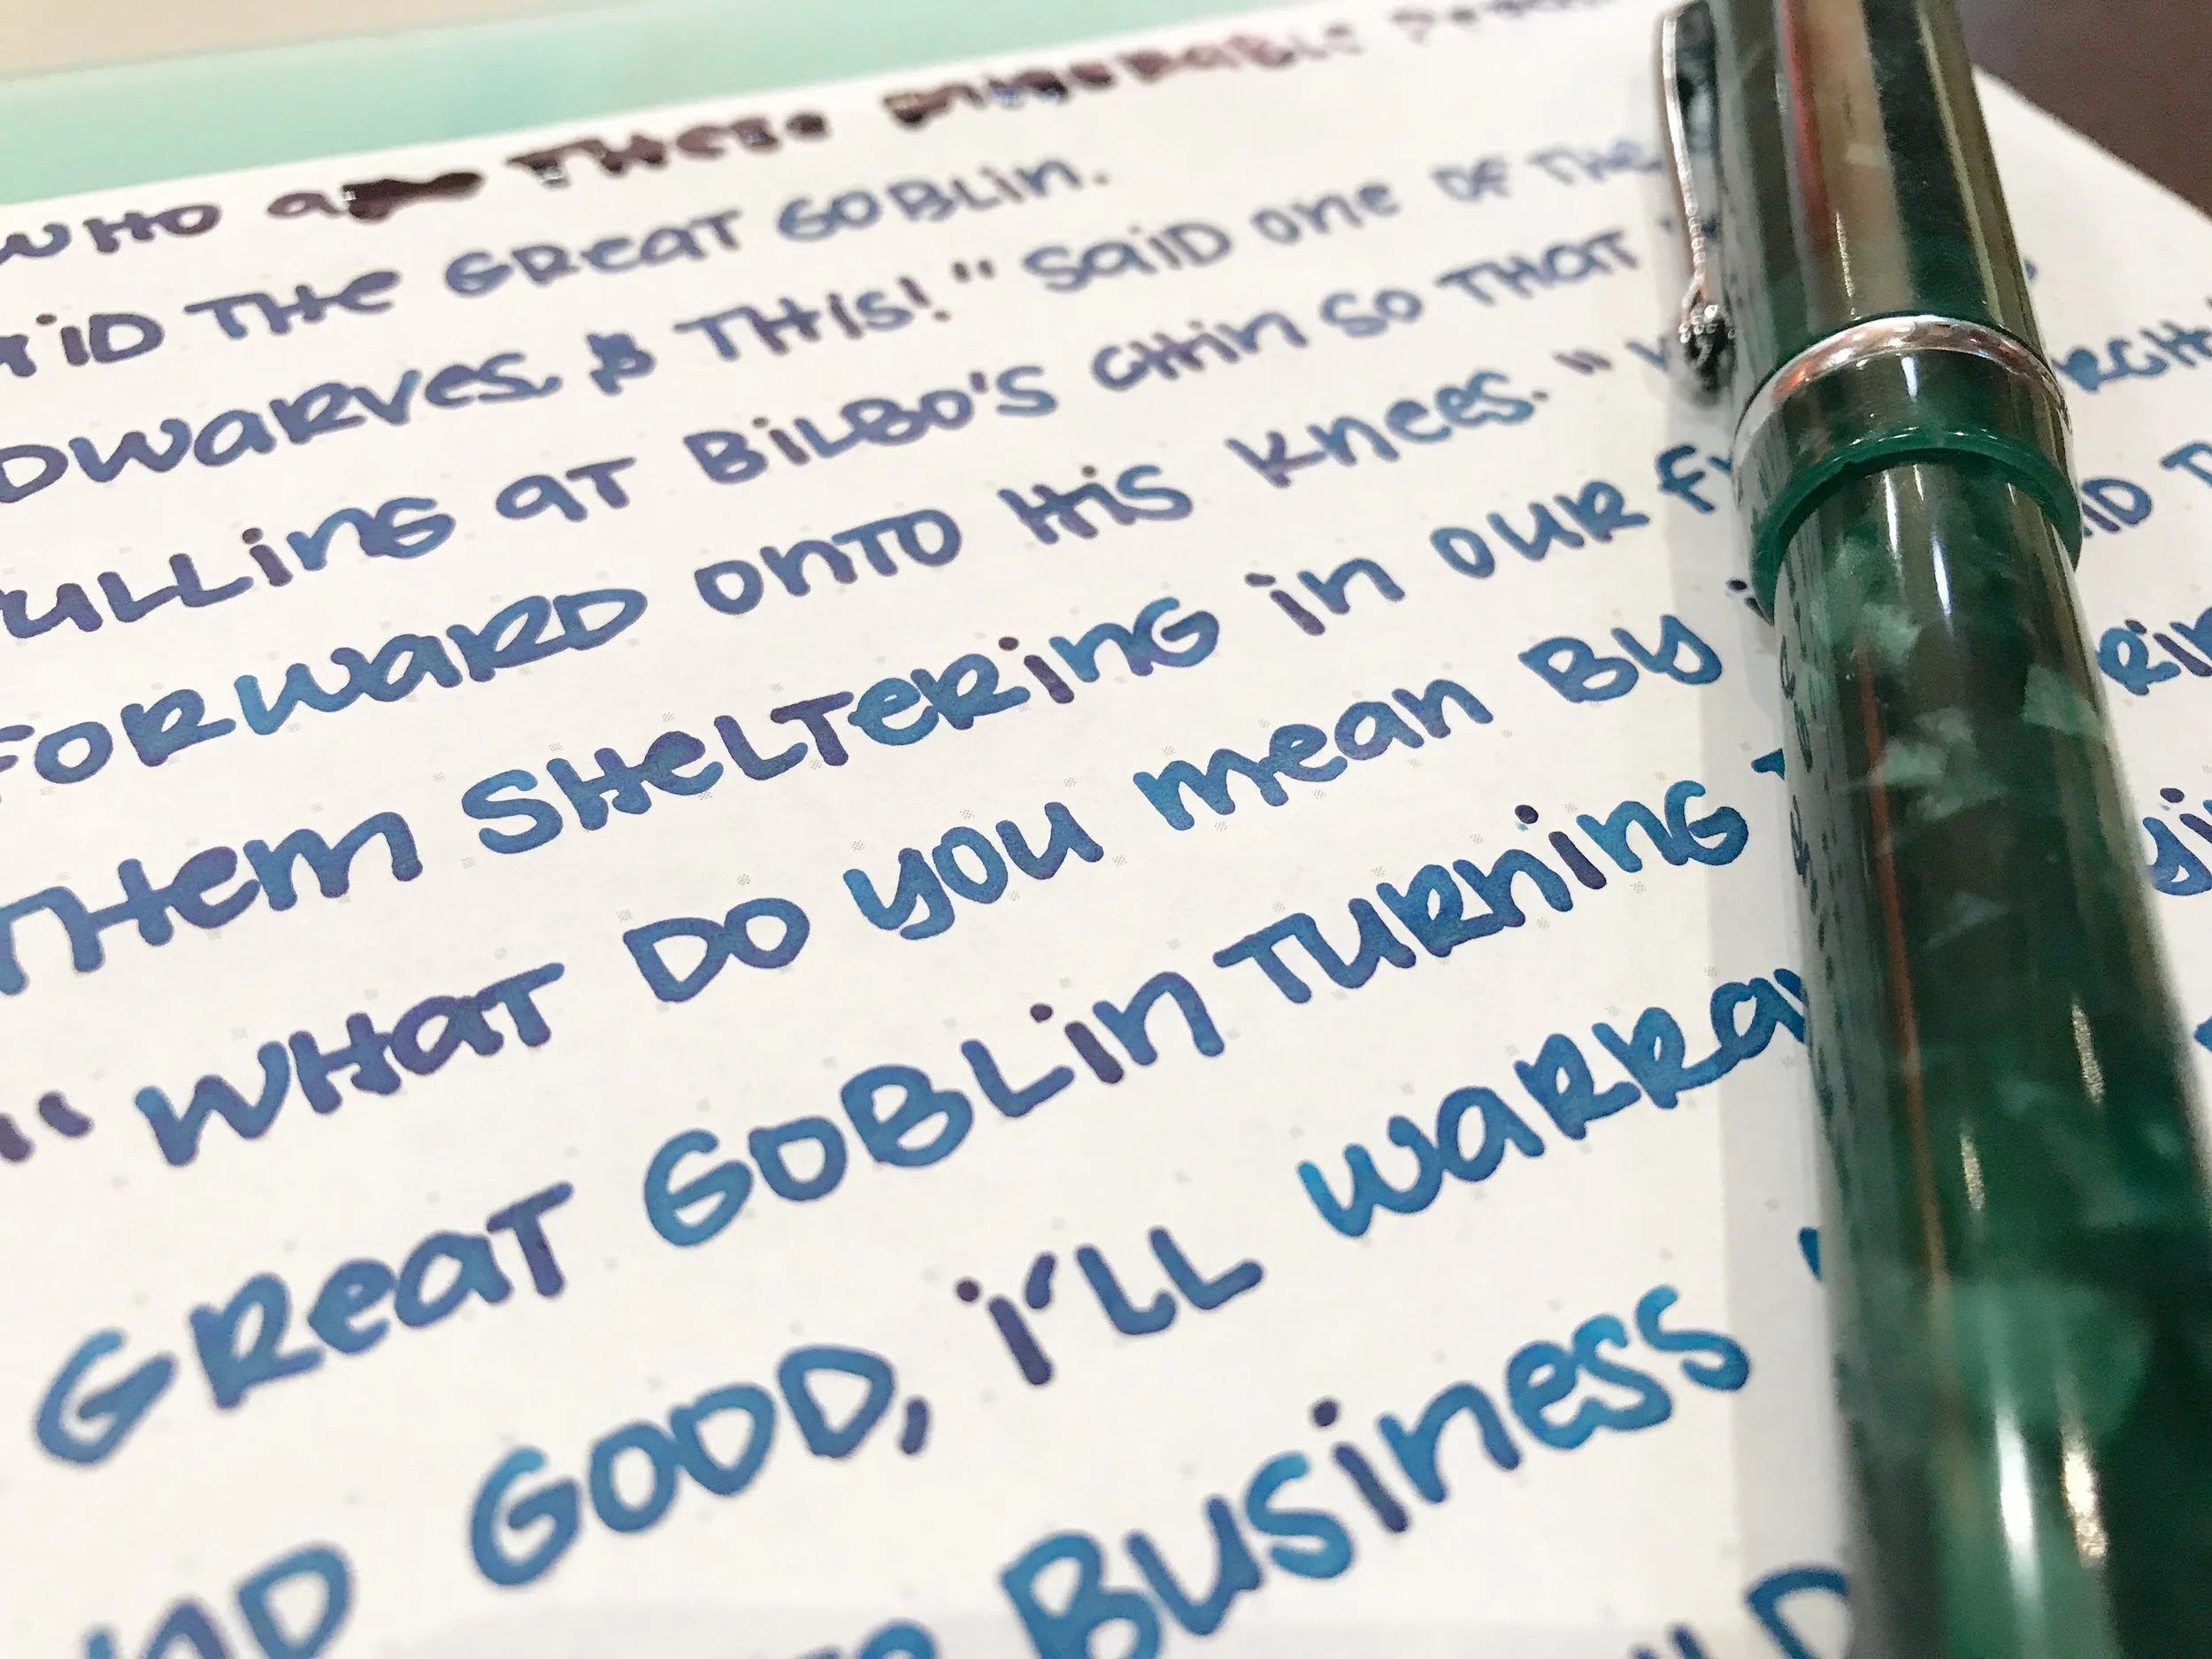 WHO THESE MISERABLE
THE GREAT GOBLIN.
DWARVES & THIS!" SAID ONE OF THE
ULLING AT BILBO'S CHIN SO THAT
FORWARD ONTO HIS KNEES. "
THEM SHELTERING IN OUR
"WHAT DO YOU MEAN BY
GREAT GOBLIN TURNING
GOOD, I'LL WARRA
BUSINESS